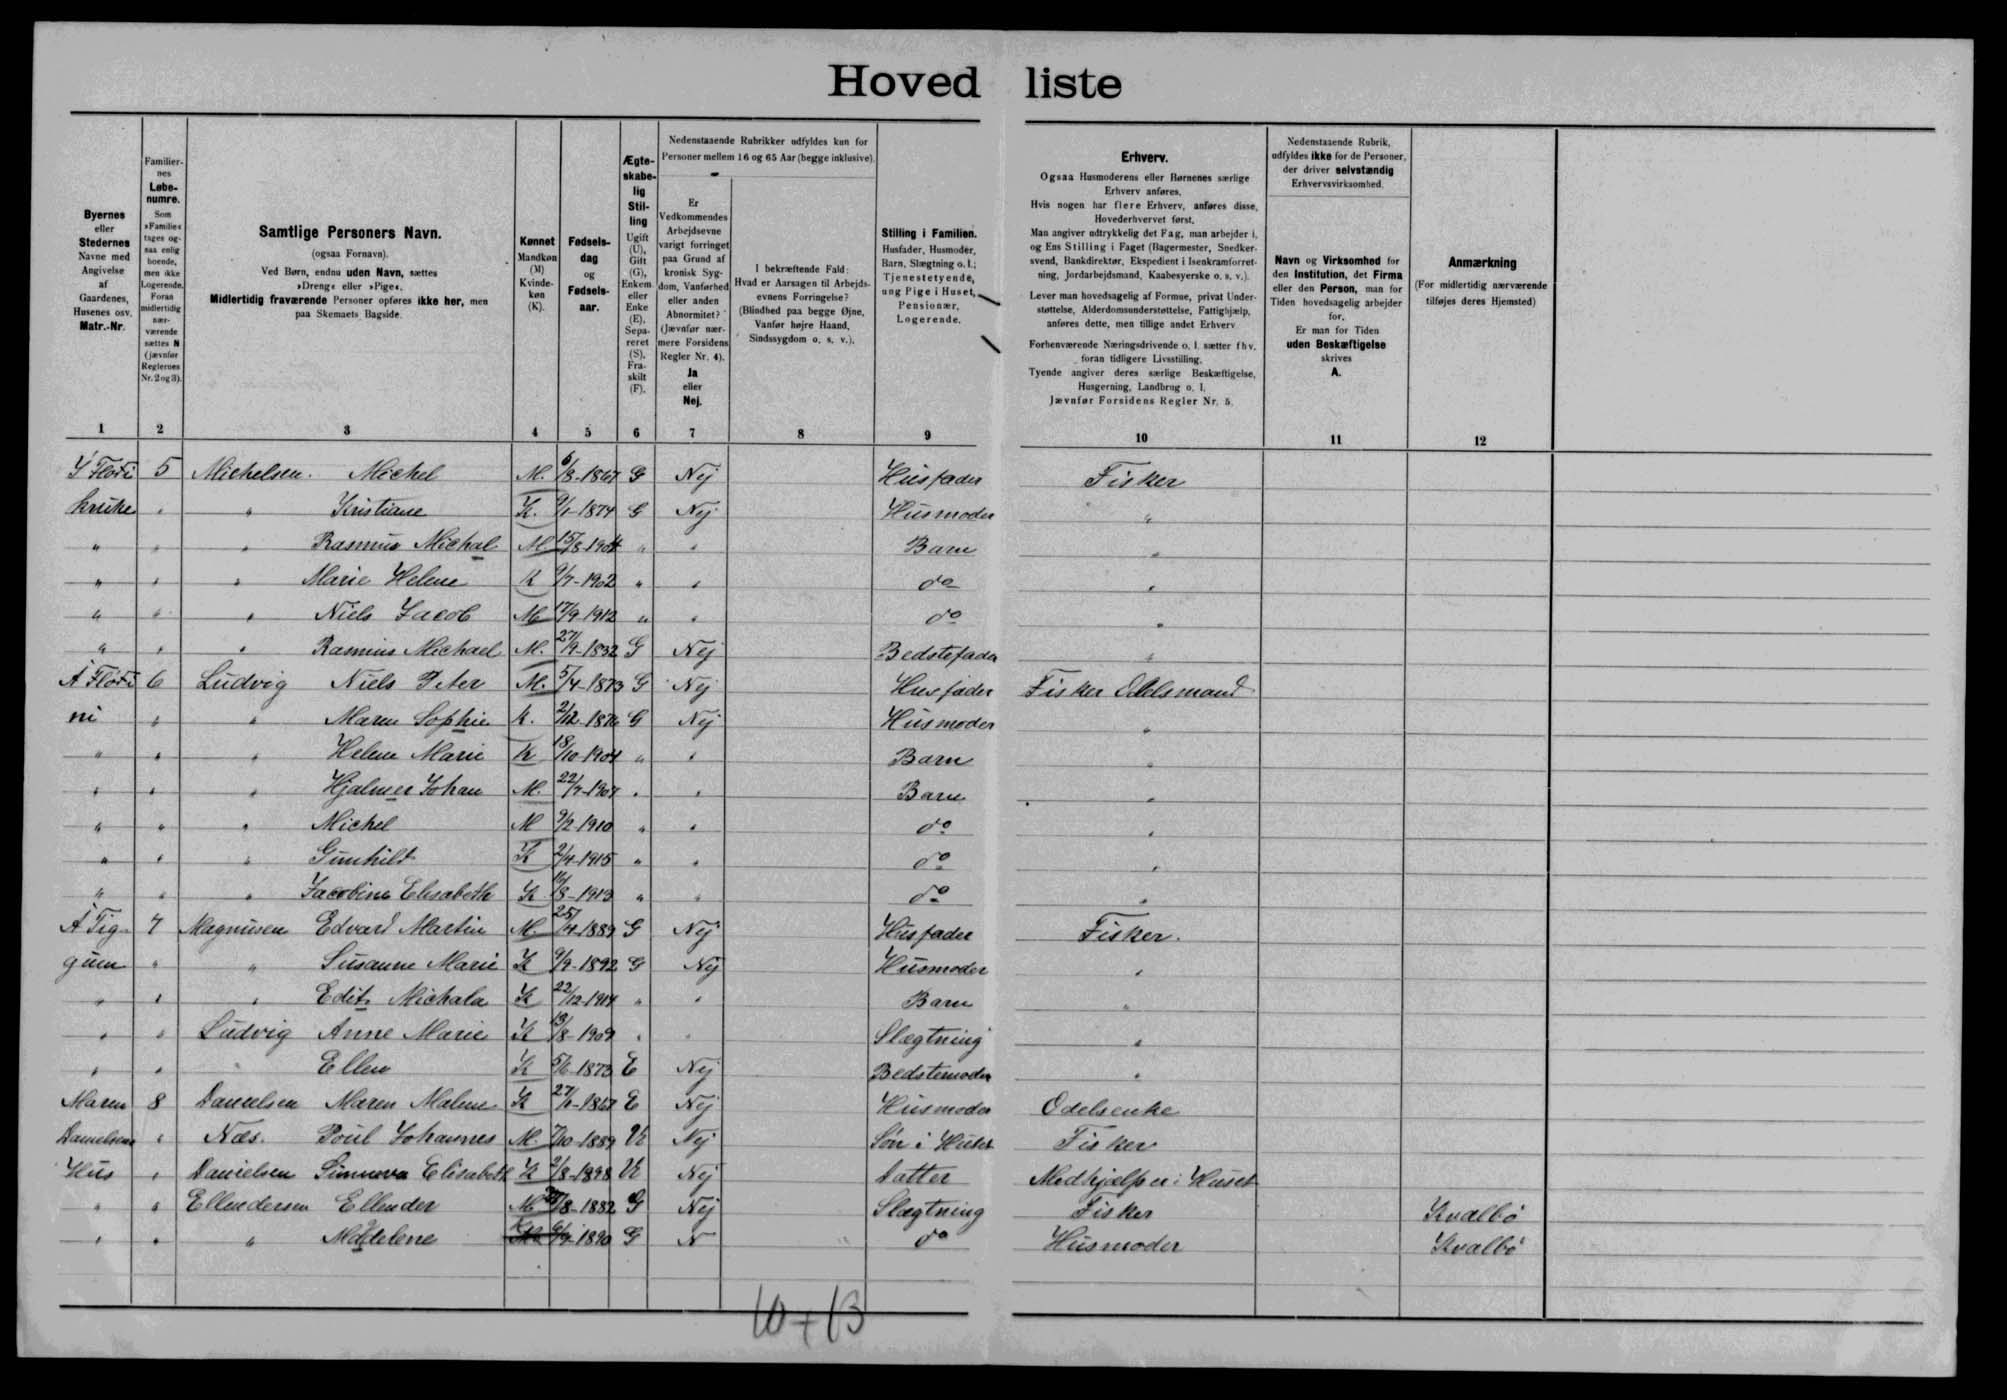 Hovedliste
Byernes eller Stedernes Navne med Angivelse af Gaardenes, Husenes osv. Matr.-Nr.
Familiernes Løbenumre. Som »Familie« tages ogsaa enlig boende, men ikke Logerende. Foran midlertidig nærværende sættes N (jævnfør Reglernes Nr. 2 og 3).
Samtlige Personers Navn. (ogsaa Fornavn). Ved Børn, endnu uden Navn, sættes »Dreng« eller »Pige«. Midlertidig fraværende Personer opføres ikke her, men paa Skemaets Bagside.
Kønnet Mandkøn (M) Kvindekøn (K).
Fødselsdag og Fødselsaar.
Ægteskabelig Stilling Ugift (U), Gift (G), Enkem. eller Enke (E), Separeret (S), Fraskilt (F).
Nedenstaaende Rubrikker udfyldes kun for Personer mellem 16 og 65 Aar (begge inklusive).
Er Vedkommendes Arbejdsevne varigt forringet paa Grund af kronisk Sygdom, Vanførhed eller anden Abnormitet? (Jævnfør nærmere Forsidens Regler Nr. 4). Ja eller Nej.
I bekræftende Fald: Hvad er Aarsagen til Arbejdsevnens Forringelse? (Blindhed paa begge Øjne, Vanfør højre Haand, Sindssygdom o. s. v.).
Stilling i Familien. Husfader, Husmoder, Barn, Slægtning o. l.; Tjenestetyende, ung Pige i Huset, Pensionær, Logerende.
Erhverv. Ogsaa Husmoderens eller Børnenes særlige Erhverv anføres. Hvis nogen har flere Erhverv, anføres disse, Hovederhvervet først. Man angiver udtrykkelig det Fag, man arbejder i, og Ens Stilling i Faget (Bagermester, Snedkersvend, Bankdirektør, Ekspedient i Isenkramforretning, Jordarbejdsmand, Kaabesyerske o. s. v.). Lever man hovedsagelig af Formue, privat Understøttelse, Alderdomsunderstøttelse, Fattighjælp, anføres dette, men tillige andet Erhverv Forhenværende Næringsdrivende o. l. sætter fhv. foran tidligere Livsstilling. Tyende angiver deres særlige Beskæftigelse, Husgerning, Landbrug o. l. Jævnfør Forsidens Regler Nr. 5.
Nedenstaaende Rubrik, udfyldes ikke for de Personer, der driver selvstændig Erhvervsvirksomhed.
Navn og Virksomhed for den Institution, det Firma eller den Person, man for Tiden hovedsagelig arbejder for. Er man for Tiden uden Beskæftigelse skrives A.
Anmærkning (For midlertidig nærværende tilføjes deres Hjemsted)
1 2 3 4 5 6 7 8 9 10 11 12
5 Michelsen Michel M. 6/8-1867 G Nej Husfader Fisker
" " Kristiane K. 9/1-1874 G Nej Husmoder "
" " " Rasmus Michal M. 15/8-1904 " " Barn "
" " " Marie Helene K 9/7-1902 " " do "
" " " Niels Jacob M 17/9-1912 " " do "
" " " Rasmus Michael M. 27/9-1832 G Nej Bedstefader "
6 Ludvig Niels Peter M. 5/4-1873 G Nej Husfader Fisker Odelsmand
ni " " Maren Sophie K. 2/12-1876 G Nej Husmoder "
" " " Helene Marie K 18/10-1904 " " Barn "
" " " Hjalmer Johan M. 22/7-1907 " " Barn "
" " " Michel M 9/2-1910 " " do "
" " " Gunhild K 2/4-1915 " " do "
" " " Jacobine Elisabeth K 16/8-1913 " " do "
Á Tig 7 Magnusen Edvard Martin M. 25/4-1889 G Nej Husfader Fisker.
gum " " Susanne Marie K 9/9-1892 G Nej Husmoder "
" " " Edit Michala K 22/12-1914 " " Barn "
" " Ludvig Anne Marie K 13/8-1909 " " Slægtning "
" " " Ellen K 5/6-1873 E Nej Bedstemoder "
Maren 8 Danielsen Maren Malene K 27/1-1867 E Nej Husmoder Odelsenke
Danielsens " Næs. Poul Johannes M. 7/10-1889 U Nej Søn i Huset Fisker
Hus " Danielsen Sunneva Elisabeth K 9/8-1898 U Nej Datter Medhjælper i Huset
" " Ellendersen Ellender M 8-1882 G Nej Slægtning Fisker Kvalbø
" " " Madelene K 1890 G N do Husmoder Kvalbø
10+13